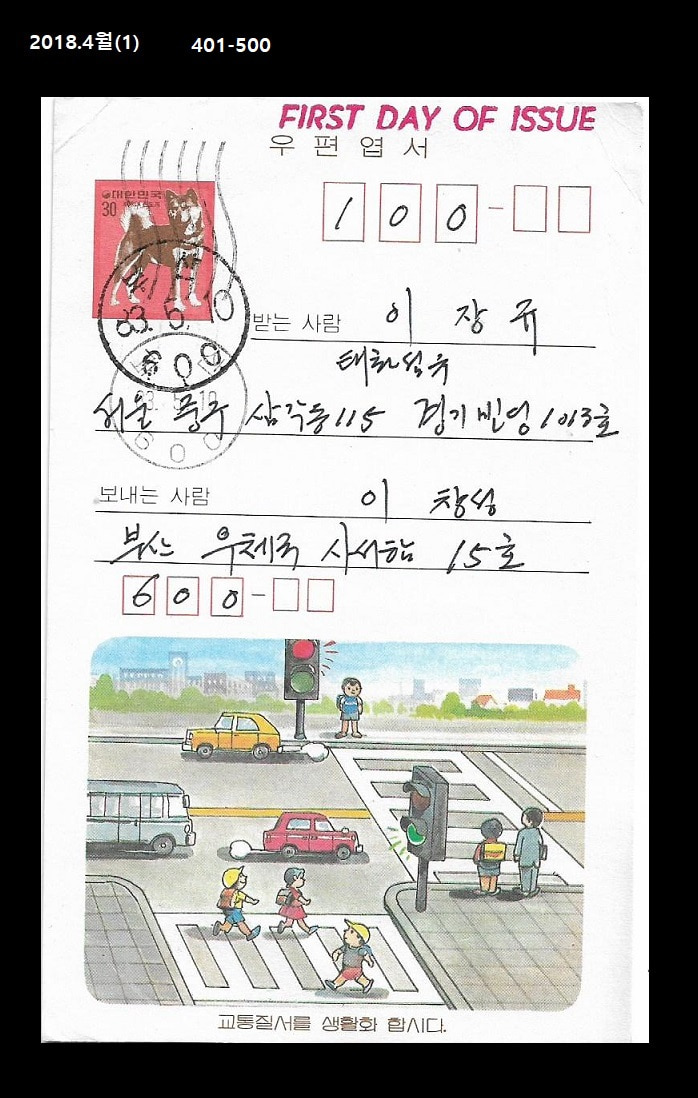 2018.4월(1) 401-500
FIRST DAY OF ISSUE
우편엽서
대한민국
30
100-
부산
83.5.10
600
83.5.10
600
받는 사람 이 장 규
태화섬유
서울 중구 삼각동 115 경기빌딩 1013호
보내는 사람 이 창성
부산 우체국 사서함 15호
600-
교통질서를 생활화 합시다.